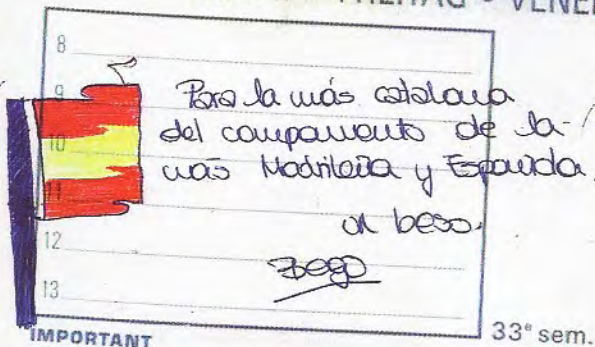 FREITAG • VENE
8
9
10
11
12
13
Para la más catalana
del campamento de la
más Madrileña y Española.
un beso.
Bego
IMPORTANT
33e sem.